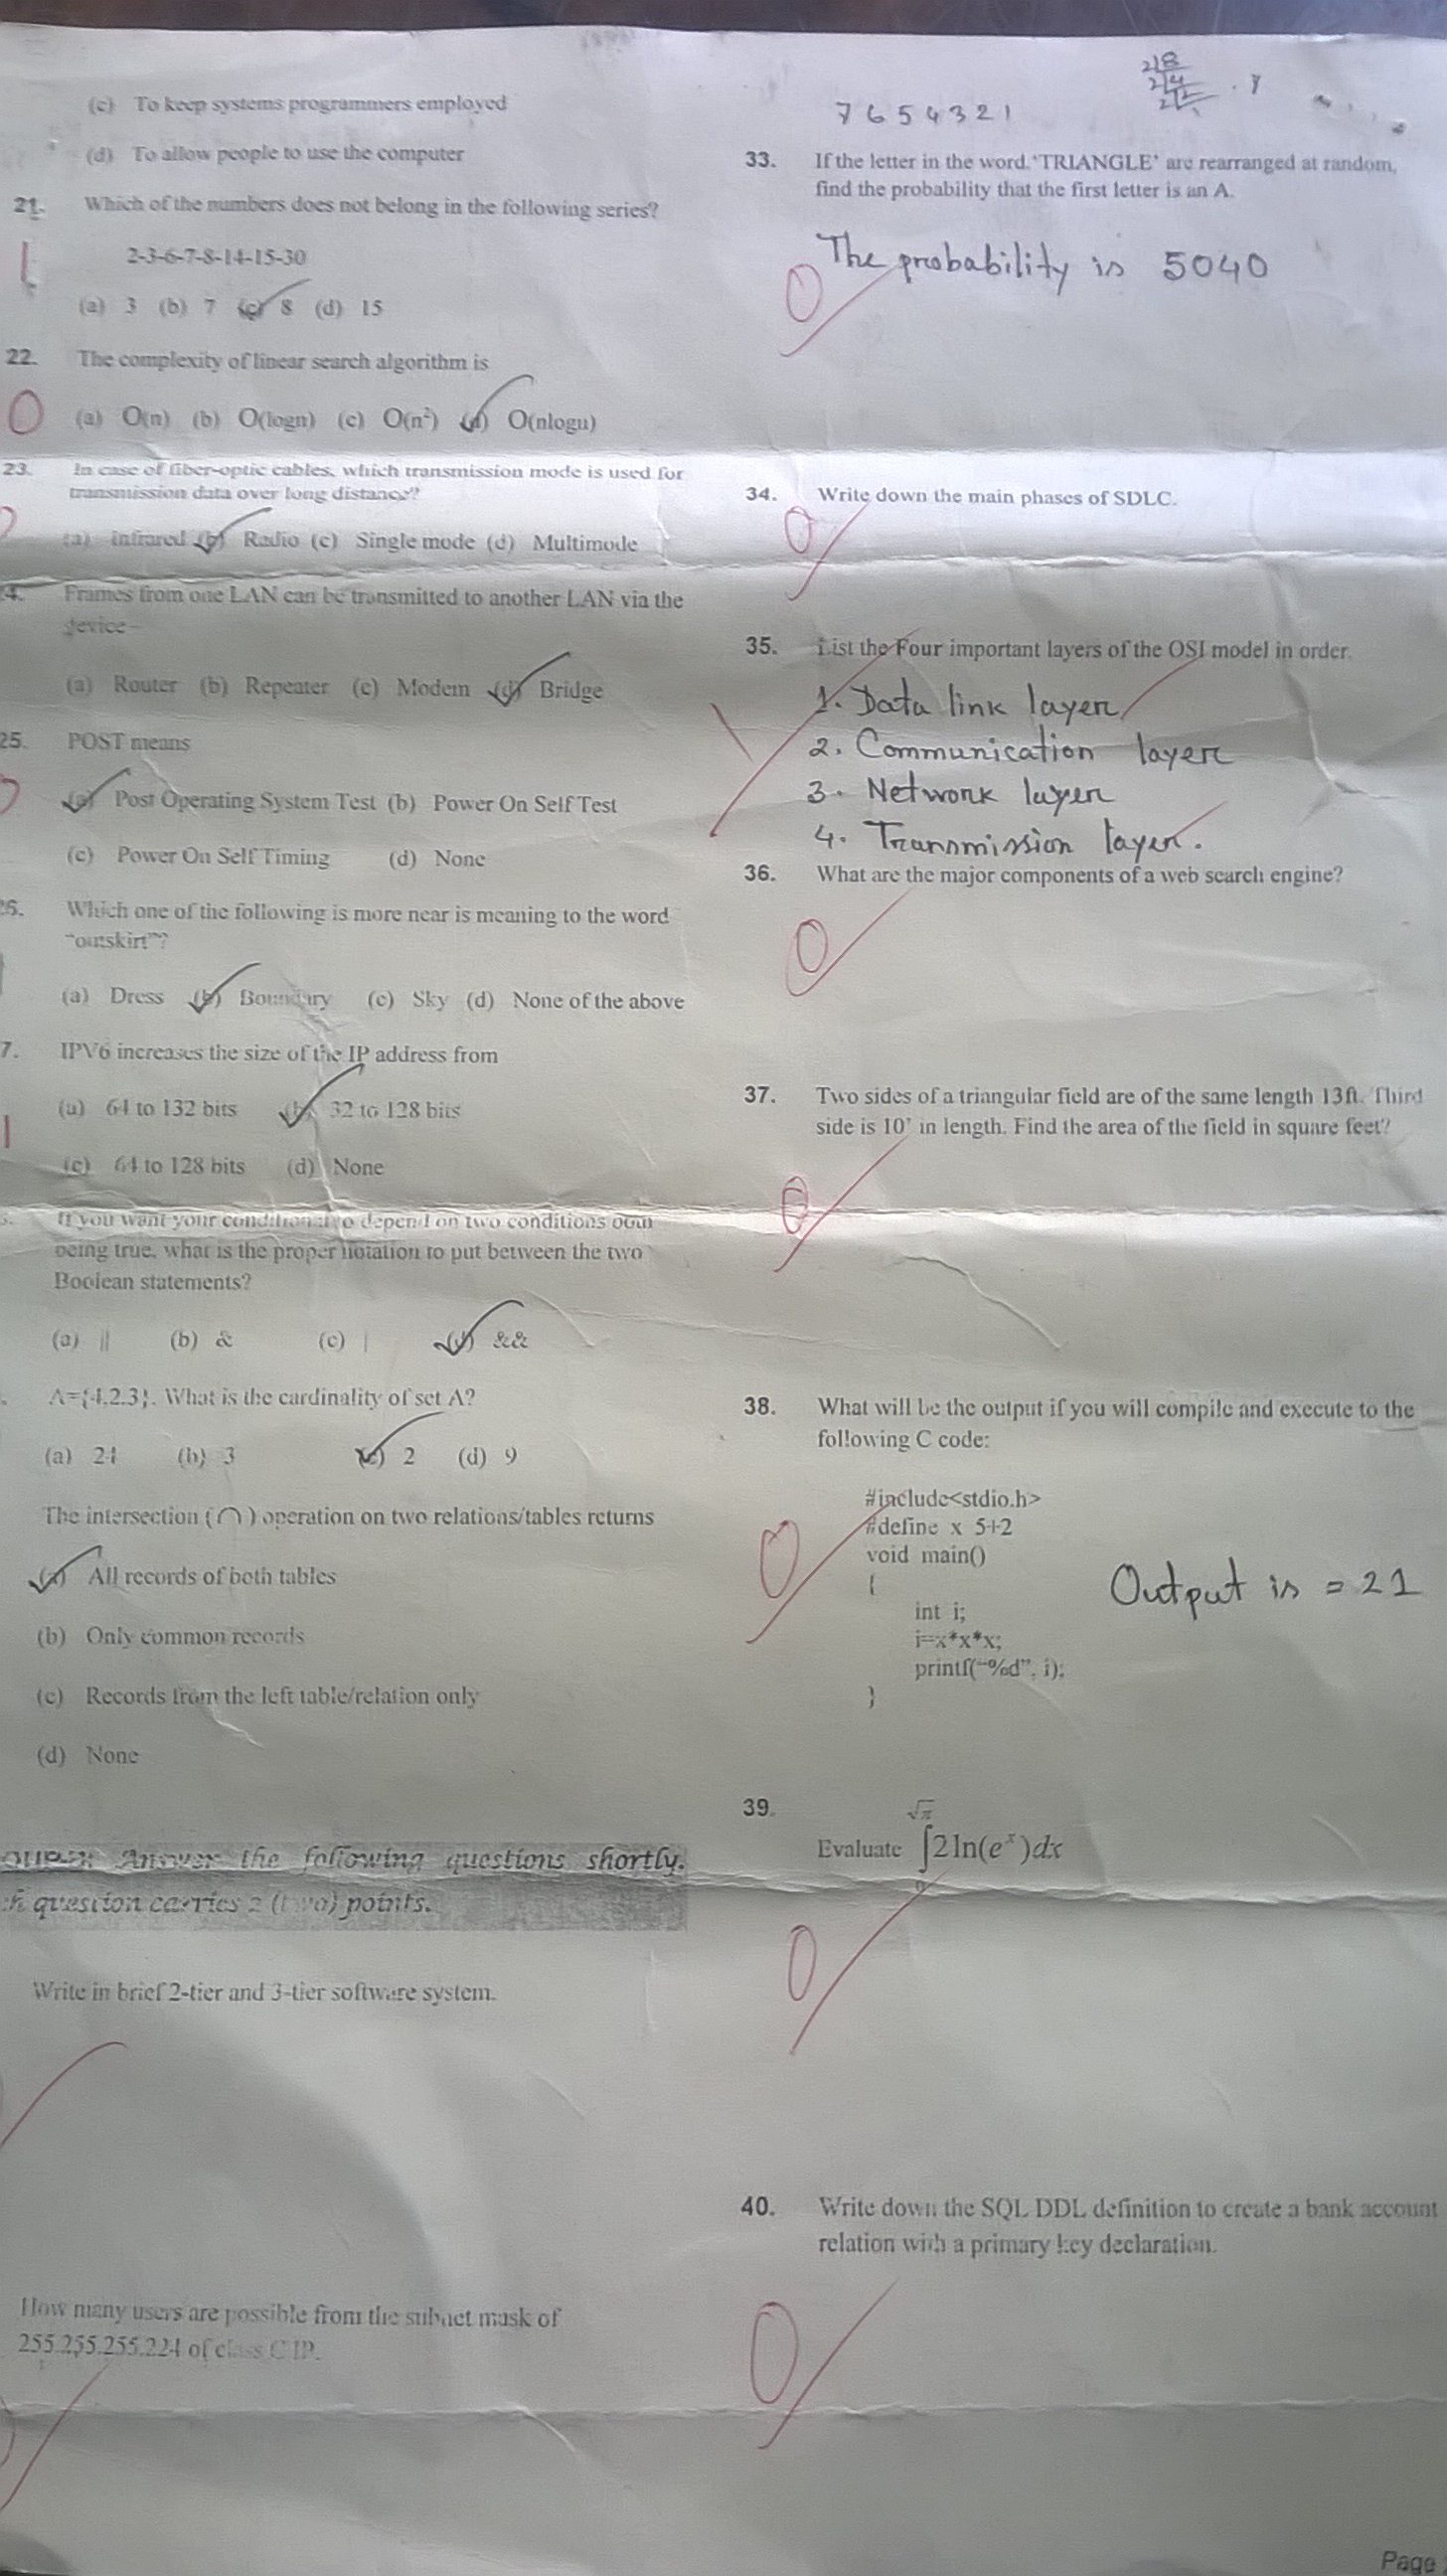 (c) To keep systems programmers employed
(d) To allow people to use the computer
21. Which of the numbers does not belong in the following series?
1
2-3-6-7-8-14-15-30
(a) 3 (b) 7 (c) 8 (d) 15
22. The complexity of linear search algorithm is
0
(a) O(n) (b) O(logn) (c) O(n²) (d) O(nlogn)
23. In case of fiber-optic cables, which transmission mode is used for
transmission data over long distance?
(a) Infrared (b) Radio (c) Single mode (d) Multimode
4. Frames from one LAN can be transmitted to another LAN via the
device–
(a) Router (b) Repeater (c) Modem (d) Bridge
25. POST means
(a) Post Operating System Test (b) Power On Self Test
(c) Power On Self Timing (d) None
26. Which one of the following is more near is meaning to the word
"outskirt"?
(a) Dress (b) Boundary (c) Sky (d) None of the above
7. IPV6 increases the size of the IP address from
(a) 64 to 132 bits (b) 32 to 128 bits
1
(c) 64 to 128 bits (d) None
If you want your conditional to depend on two conditions both
being true, what is the proper notation to put between the two
Boolean statements?
(a) || (b) & (c) | (d) &&
A={4,2,3}. What is the cardinality of set A?
(a) 24 (b) 3 (c) 2 (d) 9
The intersection (∩) operation on two relations/tables returns
(a) All records of both tables
(b) Only common records
(c) Records from the left table/relation only
(d) None
Answer the following questions shortly.
question carries 2 (two) points.
Write in brief 2-tier and 3-tier software system.
How many users are possible from the subnet mask of
255.255.255.224 of class C IP.
7 6 5 4 3 2 1
2|8
2|4
2|2
1
33. If the letter in the word 'TRIANGLE' are rearranged at random,
find the probability that the first letter is an A.
The probability is 5040
0
34. Write down the main phases of SDLC.
0
35. List the Four important layers of the OSI model in order.
1. Data link layer
2. Communication layer
3. Network layer
4. Transmission layer.
1
36. What are the major components of a web search engine?
0
37. Two sides of a triangular field are of the same length 13ft. Third
side is 10' in length. Find the area of the field in square feet?
0
38. What will be the output if you will compile and execute to the
following C code:
#include<stdio.h>
#define x 5+2
void main()
{
int i;
i=x*x*x;
printf("%d", i);
}
Output is = 21
0
39. Evaluate ∫₀^√π 2ln(eˣ)dx
0
40. Write down the SQL DDL definition to create a bank account
relation with a primary key declaration.
0
Page